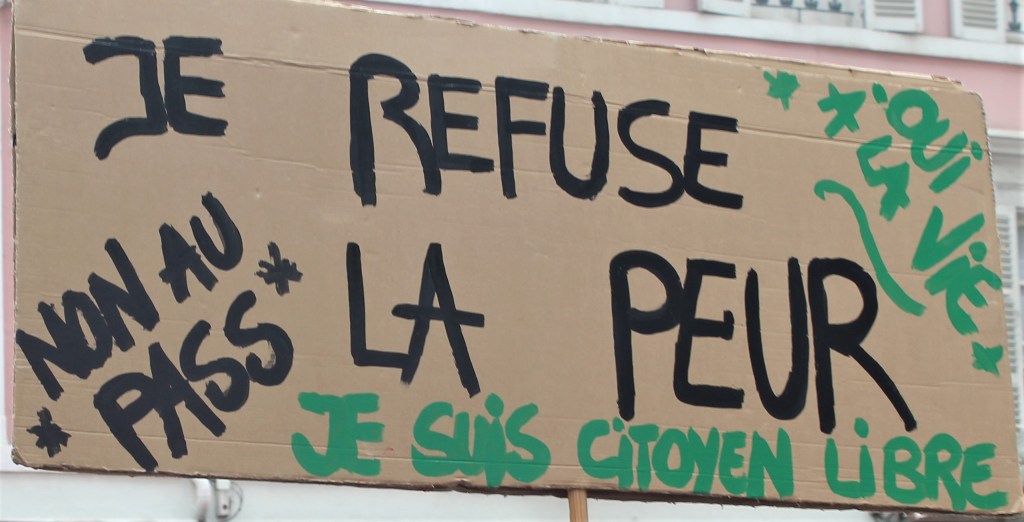 JE REFUSE
LA PEUR
* NON AU
PASS *
* OUI
LA
ViE *
JE SUiS CiTOYEN LiBRE